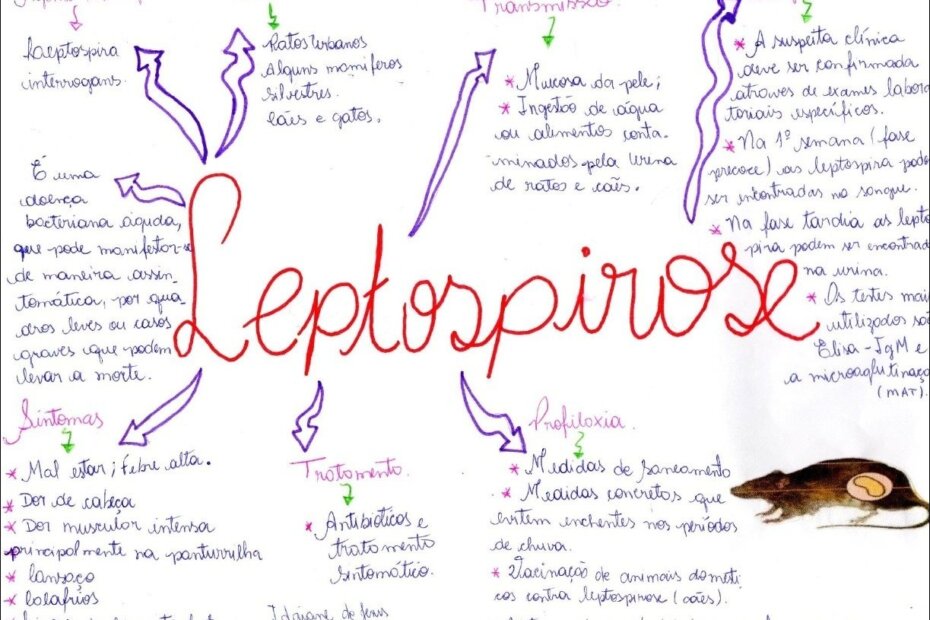 Leptospira
interrogans.
Ratos Urbanos
Alguns mamíferos
silvestres.
Cães e gatos.
Transmissão.
* Mucosa da pele;
* Ingestão de água
ou alimentos conta-
minados pela urina
de ratos e cães.
* A suspeita clínica
deve ser confirmada
através de exames labora
toriais específicos.
* Na 1ª semana (fase
precoce) as leptospira pode
ser encontradas no sangue.
* Na fase tardia as lepto
pira podem ser encontrad
na urina.
* Os testes mai
utilizados sã
Elisa-IgM e
a microaglutinaçã
(MAT).
É uma
doença
bacteriana águda,
que pode manifestar-se
de maneira assin
tomática, por qua-
dros leves ou casos
graves que podem
levar a morte.
Leptospirose
Sintomas
* Mal estar; Febre alta.
* Dor de cabeça
* Dor muscular intensa
principalmente na panturrilha
* Cansaço
* Calafrios
Tratamento.
* Antibióticos e
tratamento
sintomático.
Profilaxia.
* Medidas de Saneamento
* Medidas concretas que
evitem enchentes nos períodos
de chuva.
* Vacinação de animais domésti
cos contra leptospirose (cães).
Idaiane de Jesus